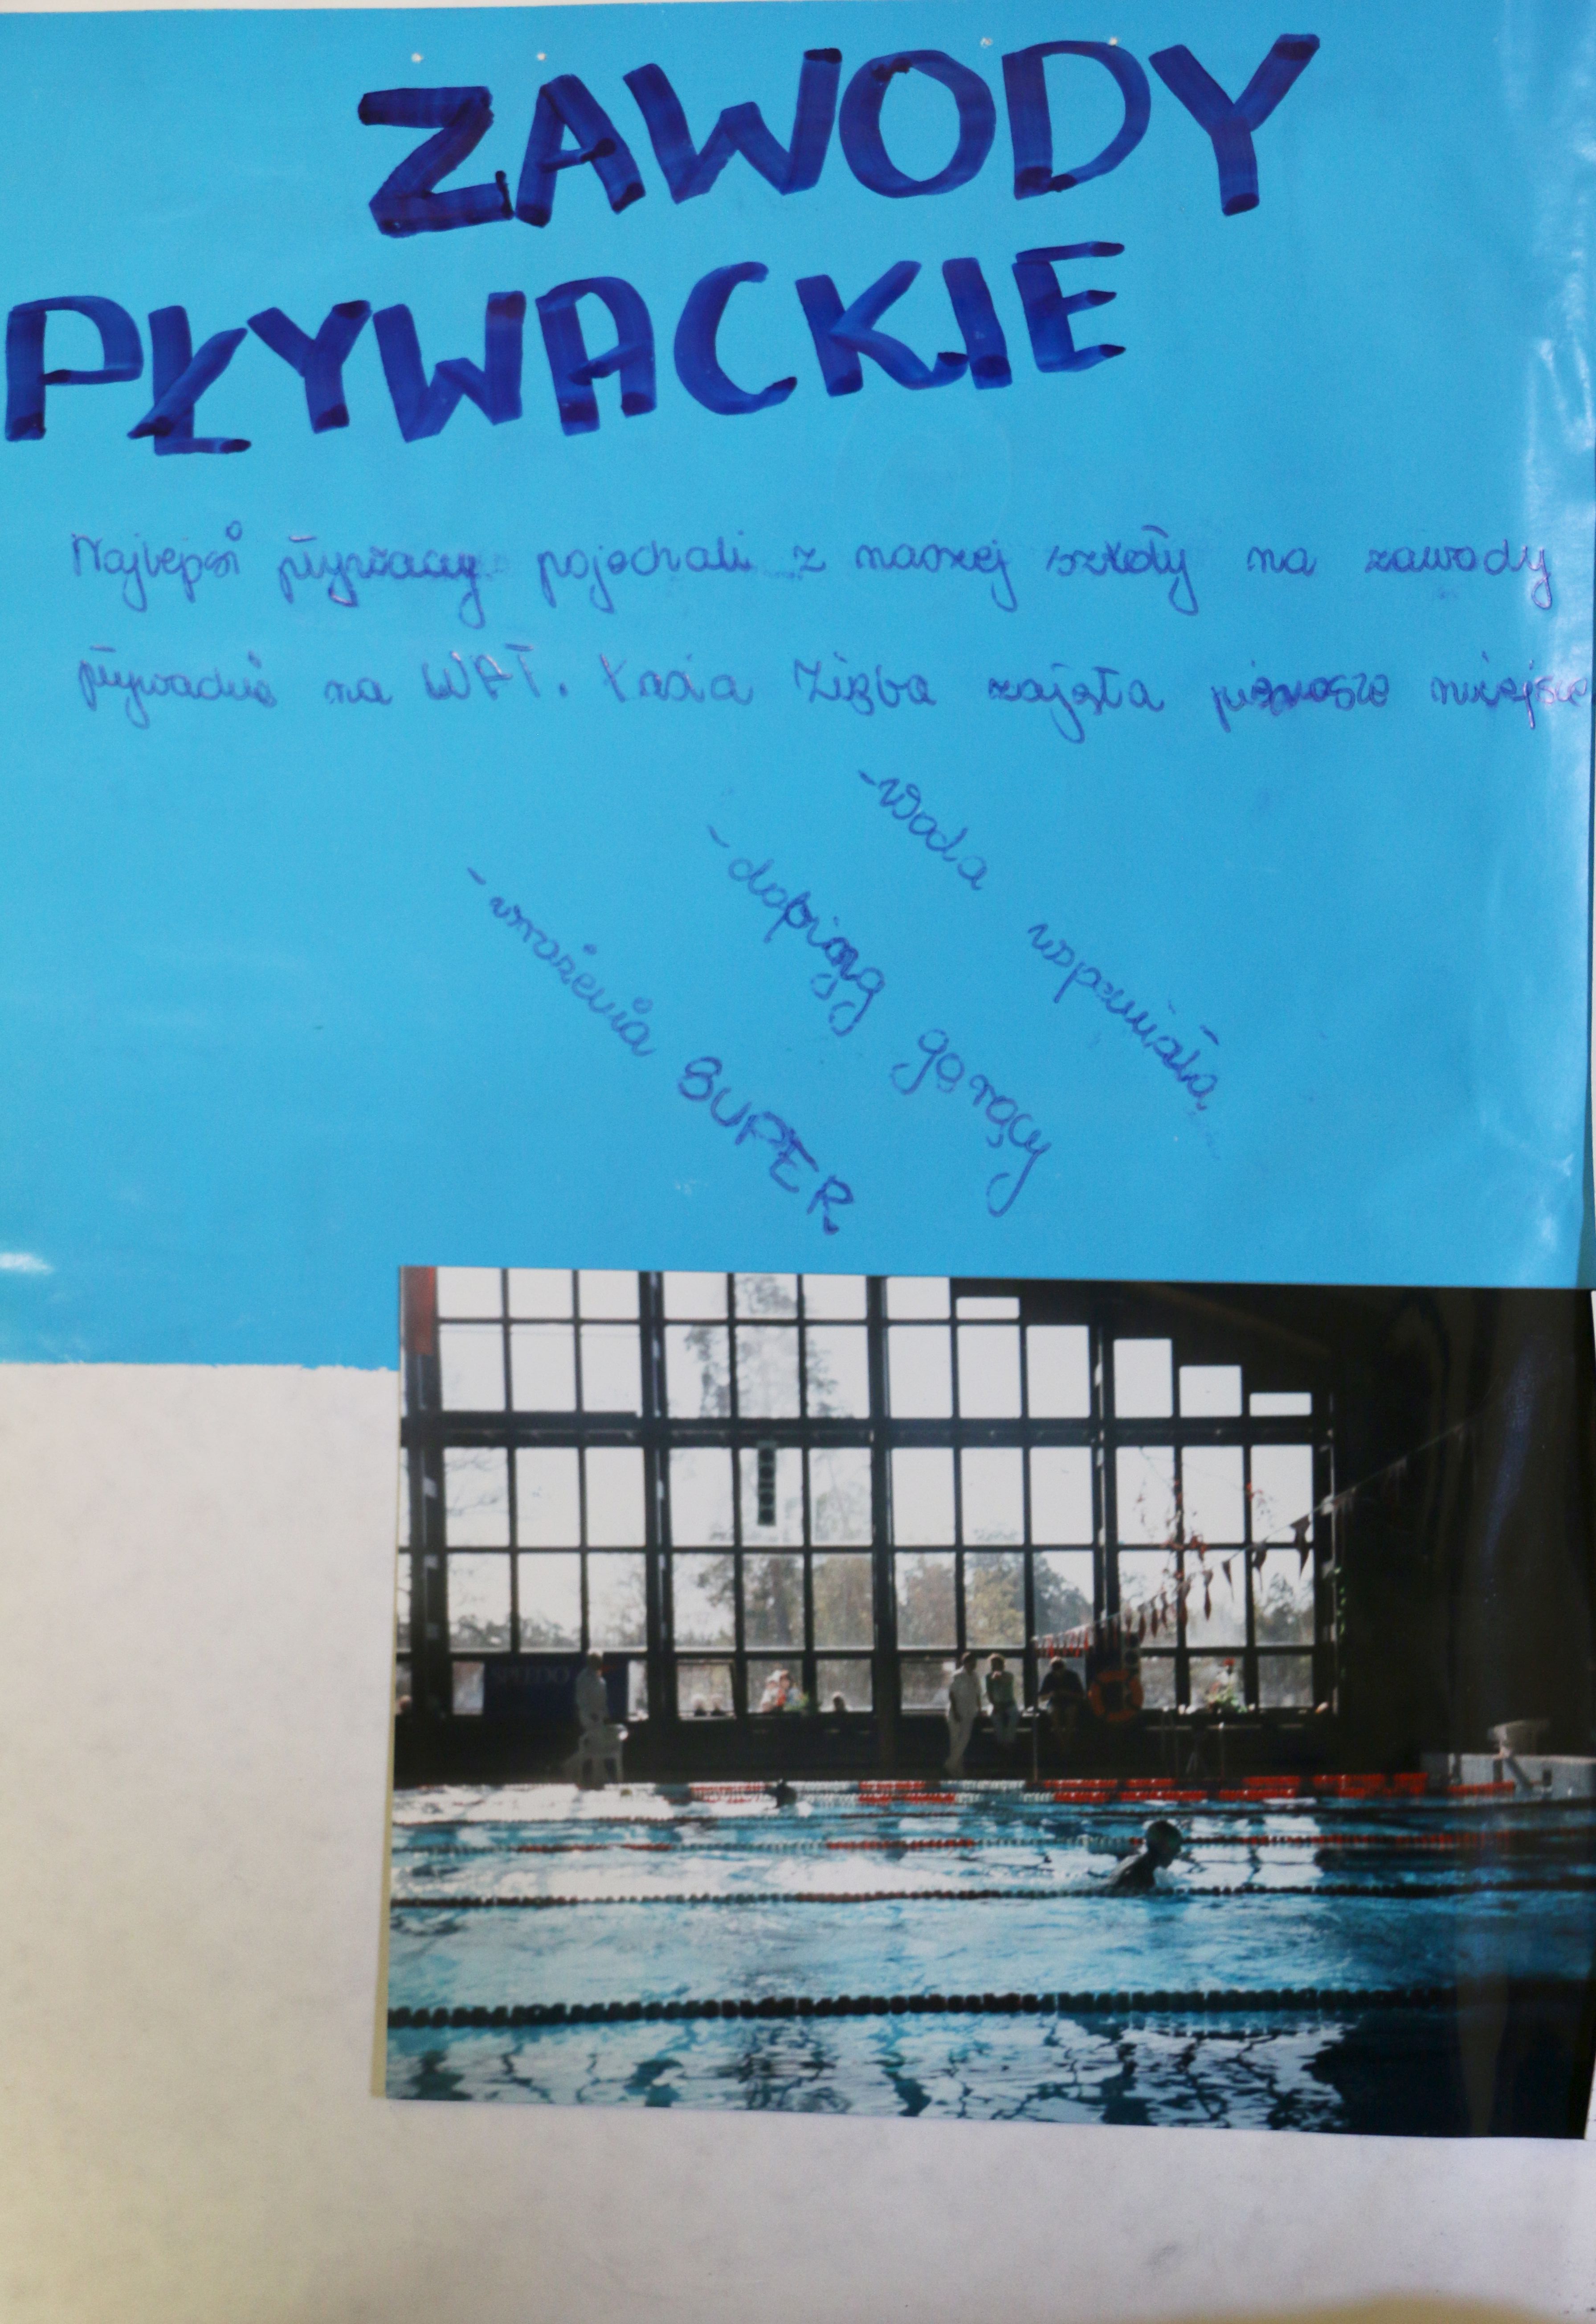 ZAWODY
PŁYWACKIE
Najlepsi pływacy pojechali z naszej szkoły na zawody
pływackie na WAT. Zięba zajęła pierwsze miejsce
-Woda wspaniała
-doping gorący
-wrażenia SUPER